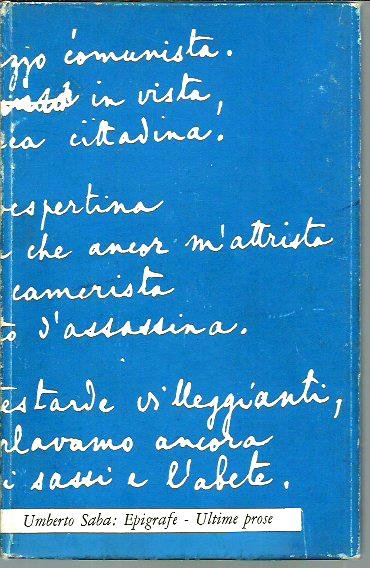 comunista.
in vista,
cittadina.
vespertina
che ancor m'attrista
camerista
to d'assassina.
estarde villeggianti,
rlavamo ancora
i sassi e l'abete.
Umberto Saba: Epigrafe - Ultime prose